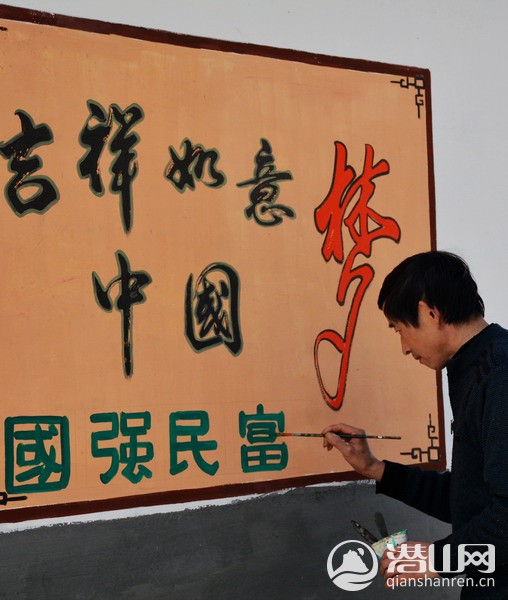 吉祥如意
中國梦
國强民富
潜山网
qianshanren.cn